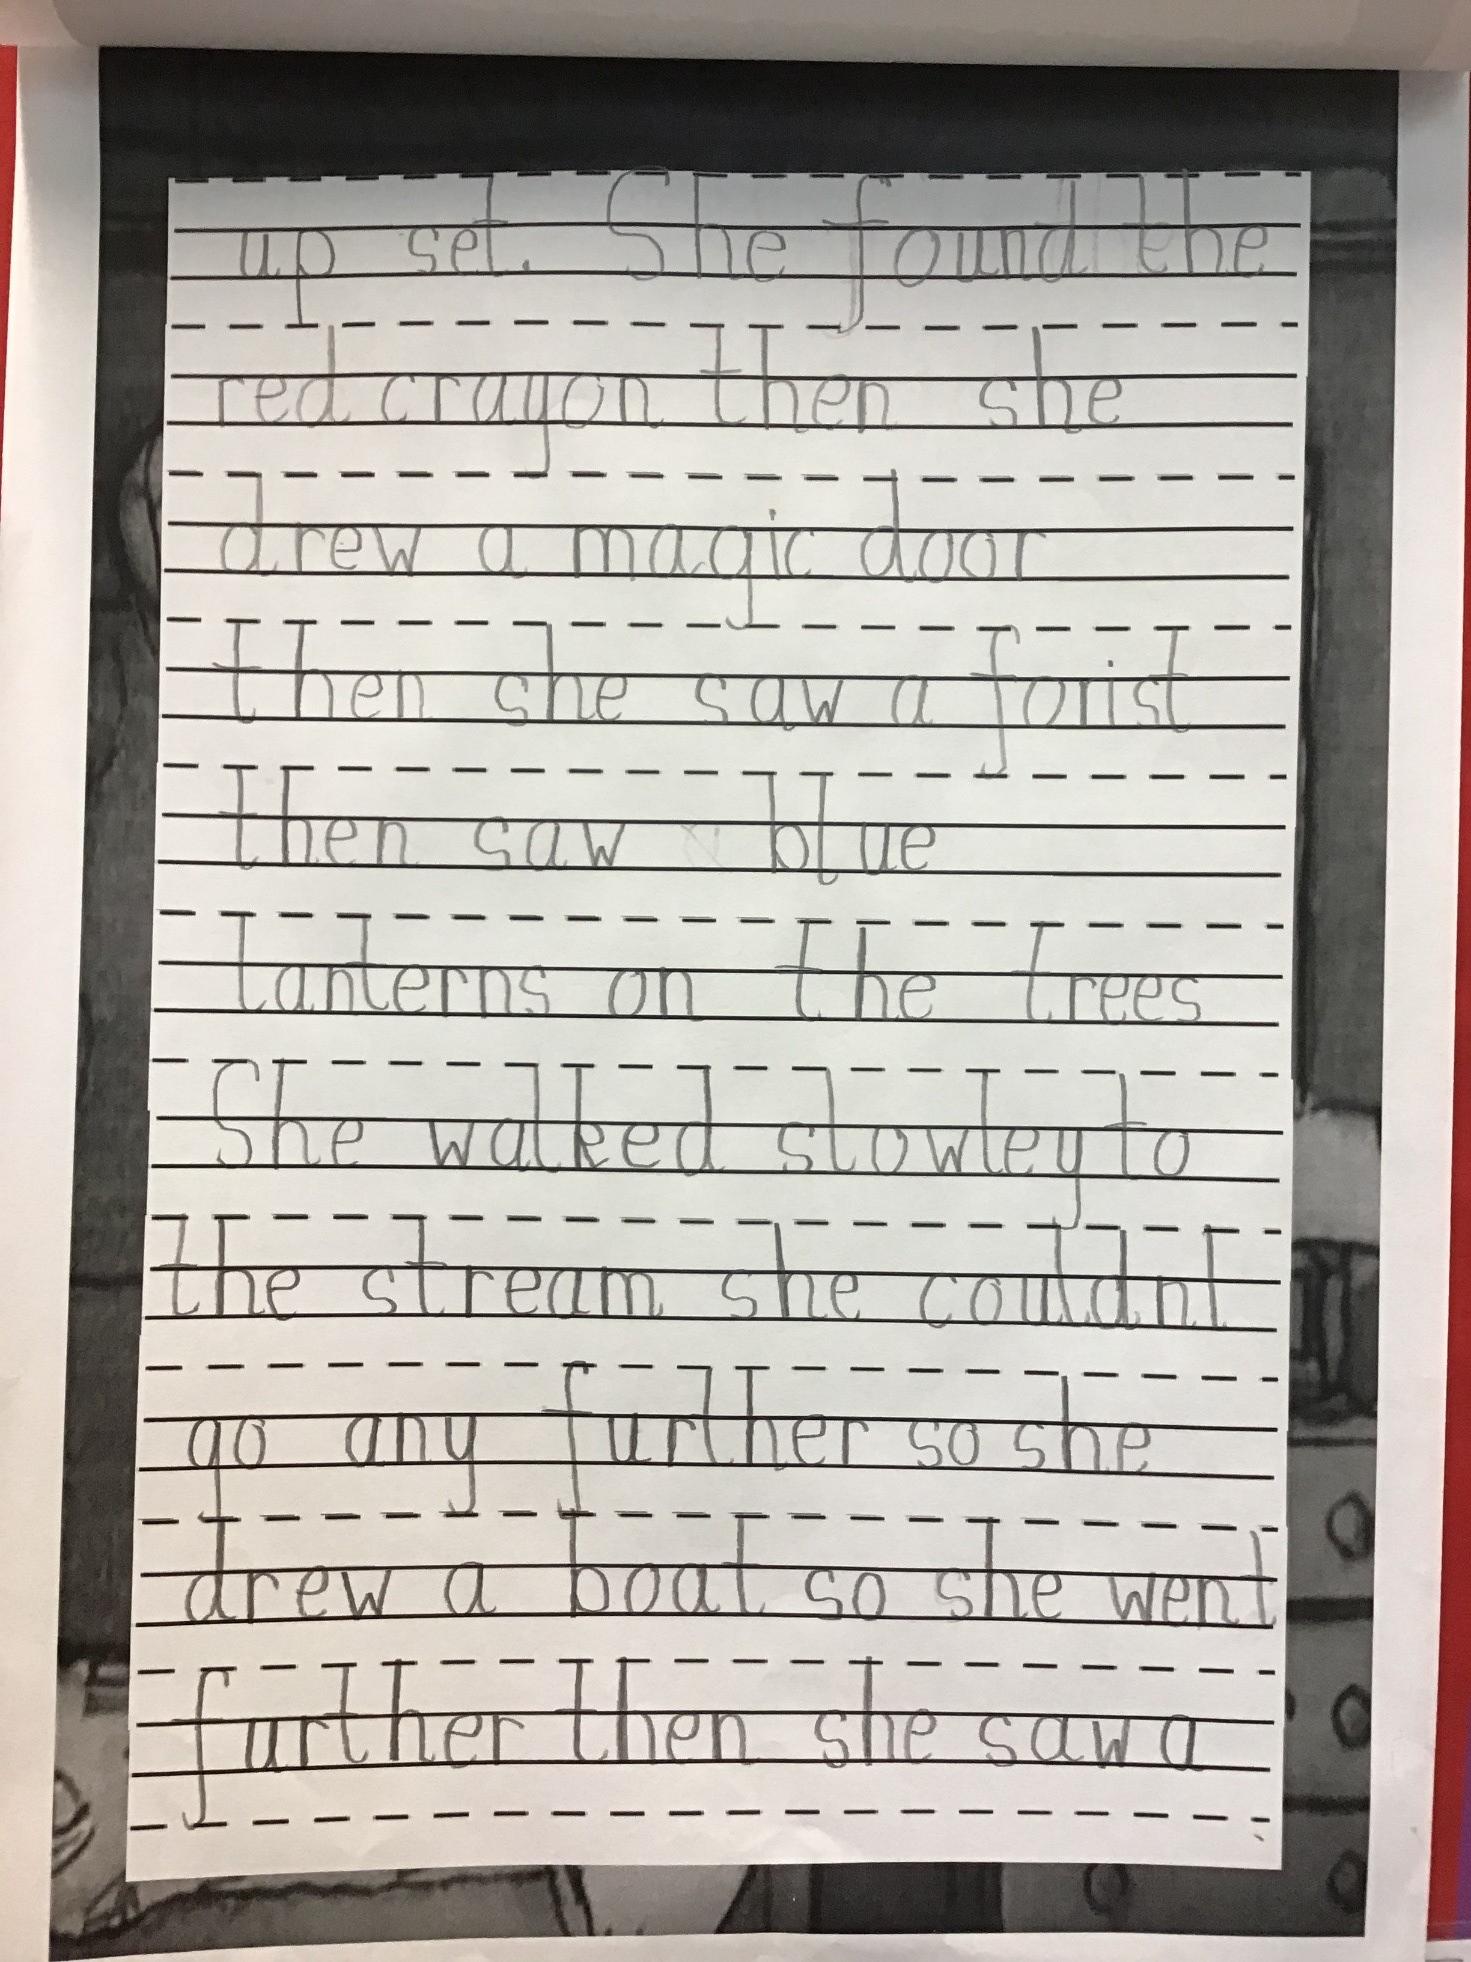 up set. She found the
red crayon then she
drew a magic door
then she saw a forist
then saw blue
lanterns on the trees
She walked slowley to
the stream she couldnt
go any further so she
drew a boat so she went
further then she saw a